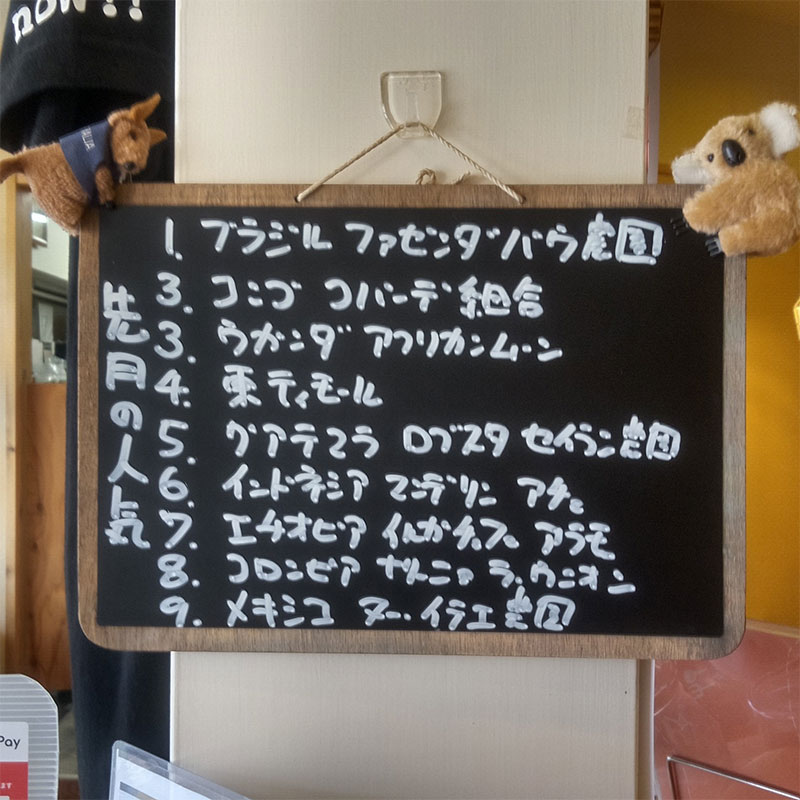 now!!
先月の人気
1. ブラジル ファゼンダバウ農園
3. コンゴ コパーデ組合
3. ウガンダ アフリカンムーン
4. 東ティモール
5. グアテマラ ロブスタ セイラン農園
6. インドネシア マンデリン アチェ
7. エチオピア イルガチェフェ アラモ
8. コロンビア ナリーニョ ラ・ウニオン
9. メキシコ ヌー・イラエ農園
Pay